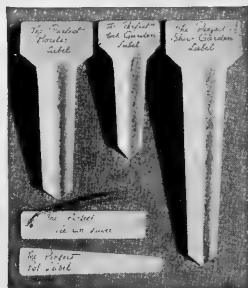 The Perfect
Border
Label
The Perfect
Rock Garden
Label
The Perfect
Show Garden
Label
The Perfect
The Perfect
Pot Label